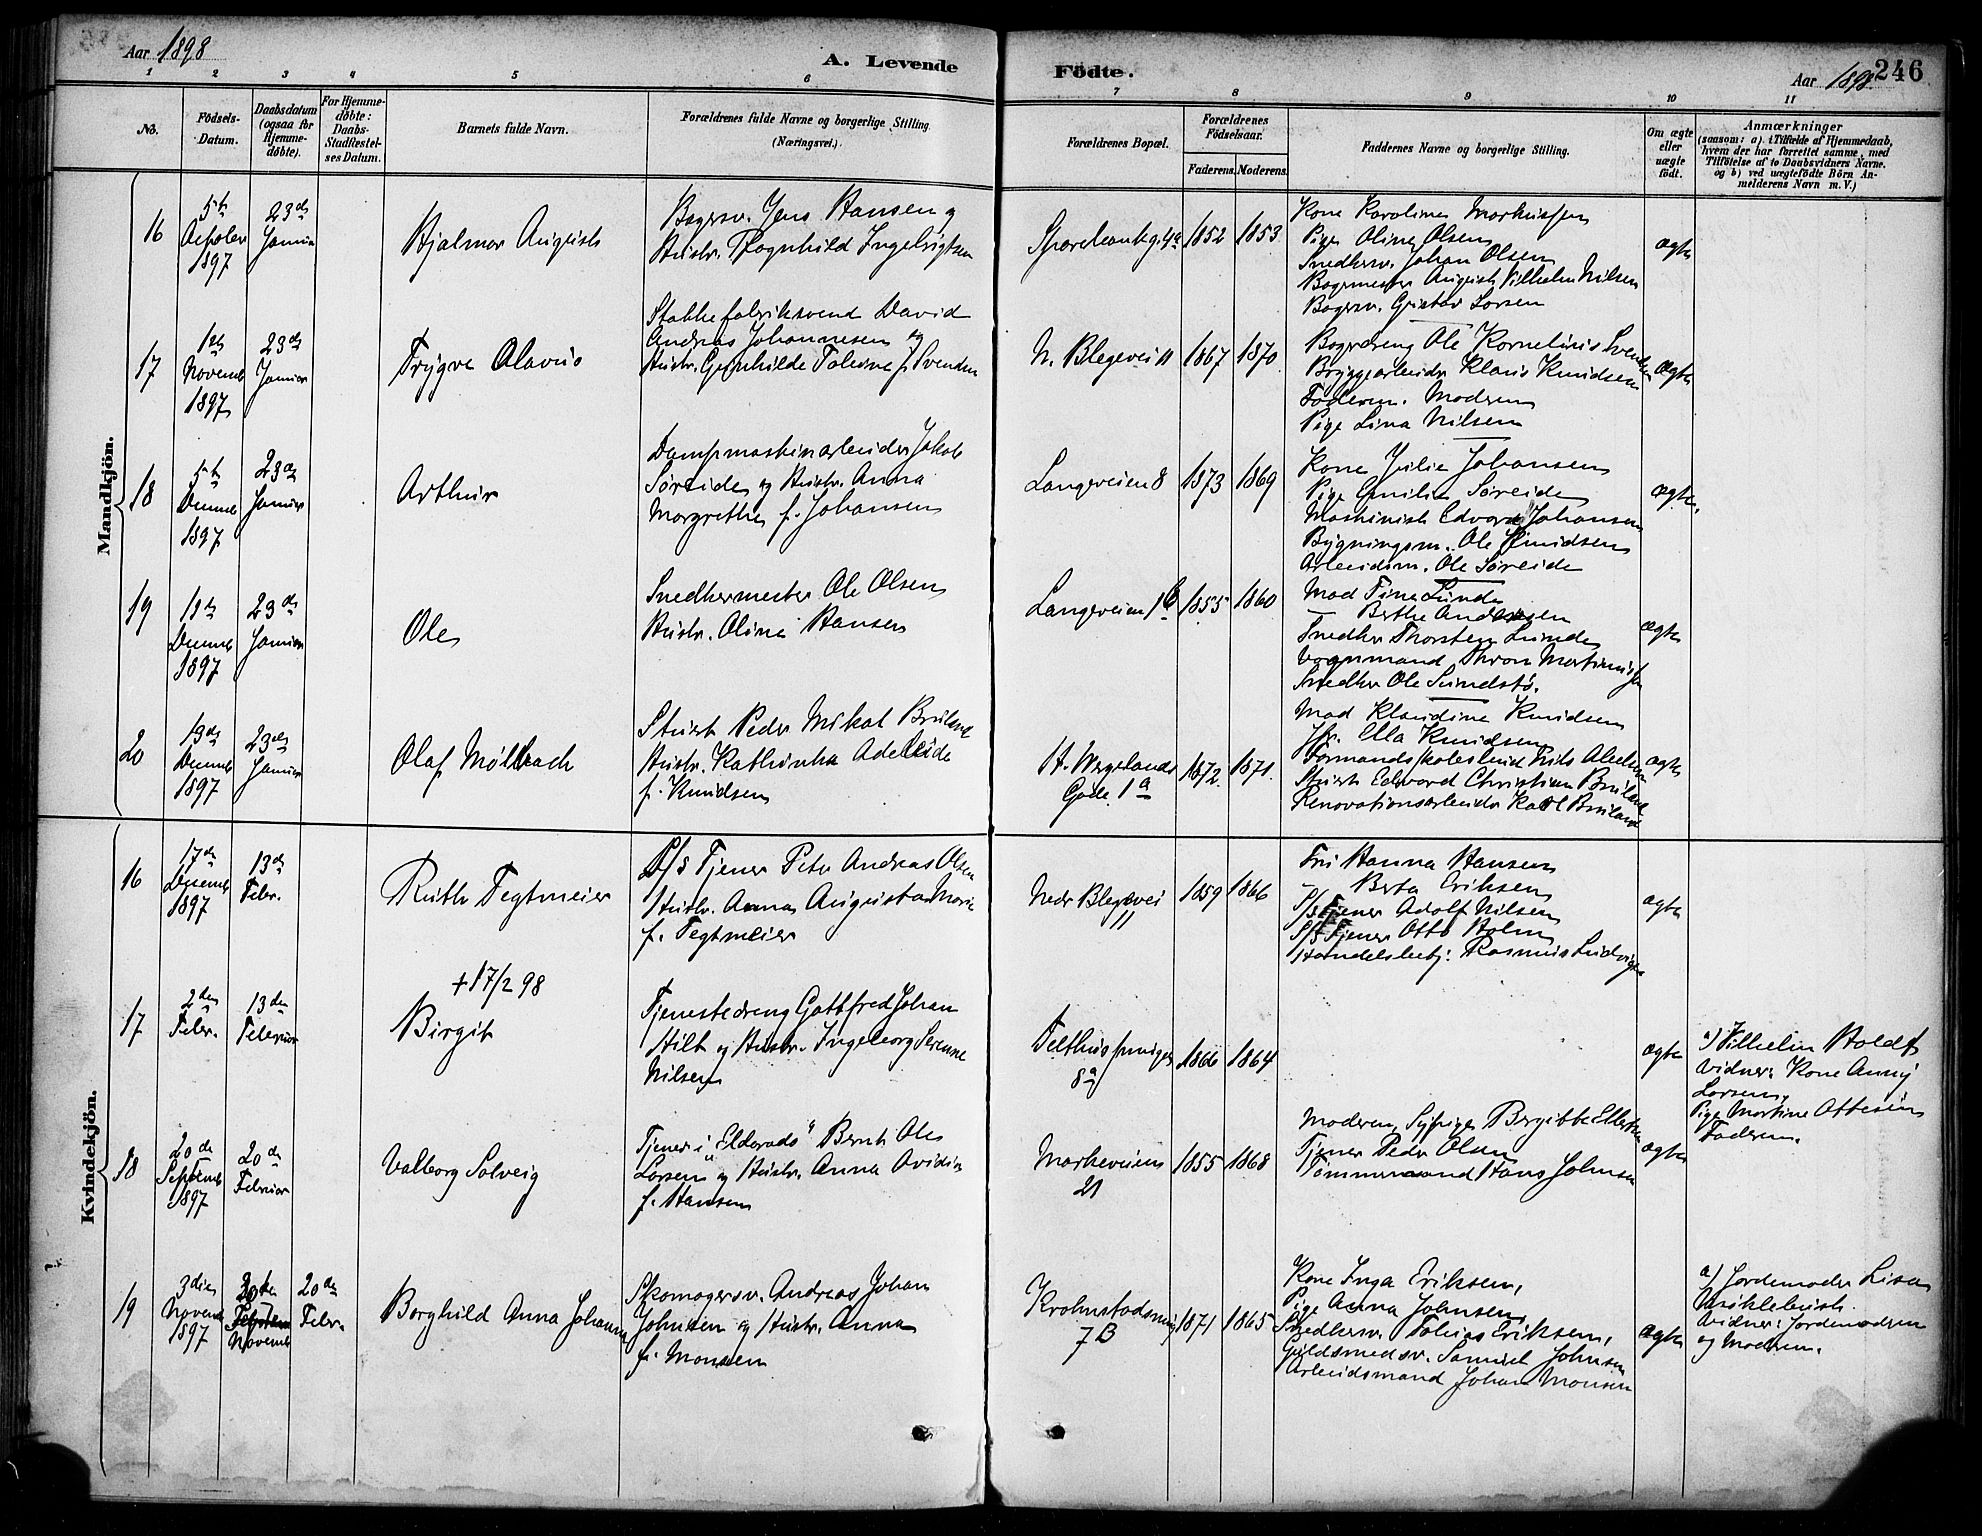 Aar 1898
A. Levende
Födte.
Aar 1898.
246
1
2
3
4
5
6
7
8
9
10
11
No.
Födsels-
Datum.
Daabsdatum
(ogsaa for
Hjemme-
döbte).
For Hjemme-
döbte:
Daabs-
Stadfæstel-
ses Datum.
Barnets fulde Navn.
Forældrenes fulde Navne og borgerlige Stilling
(Næringsvei.)
Forældrenes Bopæl.
Forældrenes
Födselsaar.
Faderens.
Moderens.
Faddernes Navne og borgerlige Stilling.
Om ægte
eller
uægte
født.
Anmærkninger
(saasom: a) i Tilfælde af Hjemmedaab,
hvem der har forrettet samme, med
Tilföielse af to Daabsvidners Navne.
og b) ved uægtefödte Börn An-
melderens Navn m. V.)
Mandkjön.
16
5te
1897
23de
Januar
Hjalmar August
Bagersv. Jens Hansen og
Hustr. Ragnhild Ingebrigtsen
1852
1853
Kone Karoline Markussen
Pige Oline Olsen
Snedkersv. Johan Olsen
Bagermester August Vilhelm Nilsen
Bagersv. Gustav Larsen
ægte
17
1ste
Novemb
1897
23de
Januar
Trygve Olavus
David
Andreas Johannesen og
Hustr. Gunhilde f. Svendsen
N. Blegevei 11
1867
1870
Bagerdreng Ole Kornelius Svendsen
Bryggearbeider Klaus Knudsen
Faderen. Moderen
Pige Lina Nilsen
ægte
18
5te
Decemb
1897
23de
Januar
Arthur
Dampmaskinarbeider Jakob
Søreide og Hustr. Anna
Margrethe f. Johansen
Langeveien 8
1873
1869
Kone Julie Johansen
Pige Emilie Søreide
Maskinist Edvard Johansen
Bygningsm. Ole Knudsen
Arbeidsm. Ole Søreide
ægte.
19
Decemb
1897
23de
Januar
Ole
Snedkermester Ole Olsen
Hustr. Oline Hansen
Langeveien 16
1855
1860
Mad Tine Lunde
— Berthe Andersen
Snedker Thorsten Lunde
Vognmand Thron Martinussen
Snedker Ole Sundstø.
ægte
20
19de
Decemb
1897
23de
Januar
Olaf Möllbach
Stuert Peder Mikal Bruland
Hustr. Kathinka Adeleide
f. Knudsen
H. Wergelands
Gade 1a
1872.
1871.
Mad Klaudine Knudsen
Jfr. Ella Knudsen
Stuert Edvard Christian Bruland
Renovationsarbeider Karl Bruland
ægte
Kvindekjön.
16
17de
Decemb
1897
13de
Febr.
Ruth Tegtmeier
D/S Tjener Peter Andreas Olsen
Hustr. Anna Augusta Marie
f. Tegtmeier
Nedr Blegevei
11
1859
1866
Fru Hanna Hansen
— Berta Eriksen
D/S Tjener Adolf Nilsen
D/S Tjener Otto Holm
Handelsbetj: Rasmus Ludvigsen
ægte
17
2den
Febr.
13de
Februar
+ 17/2 98
Birgit
Tjenestedreng Gottfred Johan
Hilt og Hustr. Ingeborg Serenne
Nilsen
8a
1866
1864
ægte
a) Vilhelm Holdt
vidner: Kone Anny
Larsen,
Pige Martine Ottesen
Faderen.
18
20de
Septemb
1897
20de
Februar
Valborg Solveig
Tjener i „Eldorado" Bernt Ole
Larsen og Hustr. Anna Avidia
f. Hansen
Markeveien
21
1855
1868
Moderen, Sypige Bergitte Ellertsen
Tjener Peder Olsen
Tømmermand Hans Johnsen
ægte
19
3die
Novemb
1897
Novemb
20de
Febr.
Borghild Anna Johanna
Skomagersv. Andreas Johan
Johnsen og Hustr. Anna
f. Monsen
7B
1871
1865
Kone Inga Eriksen,
Pige Anna Johnsen,
Snedkersv. Tobias Eriksen,
Guldsmedsv. Samuel Johnsen
Arbeidsmand Johan Monsen
ægte
a) Jordemoder Lisa
Miklebust.
vidner: Jordemoderen
og Moderen.